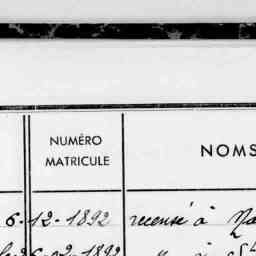 NUMÉRO
MATRICULE
NOMS
6-12-1892 recensé à
26-02-1892